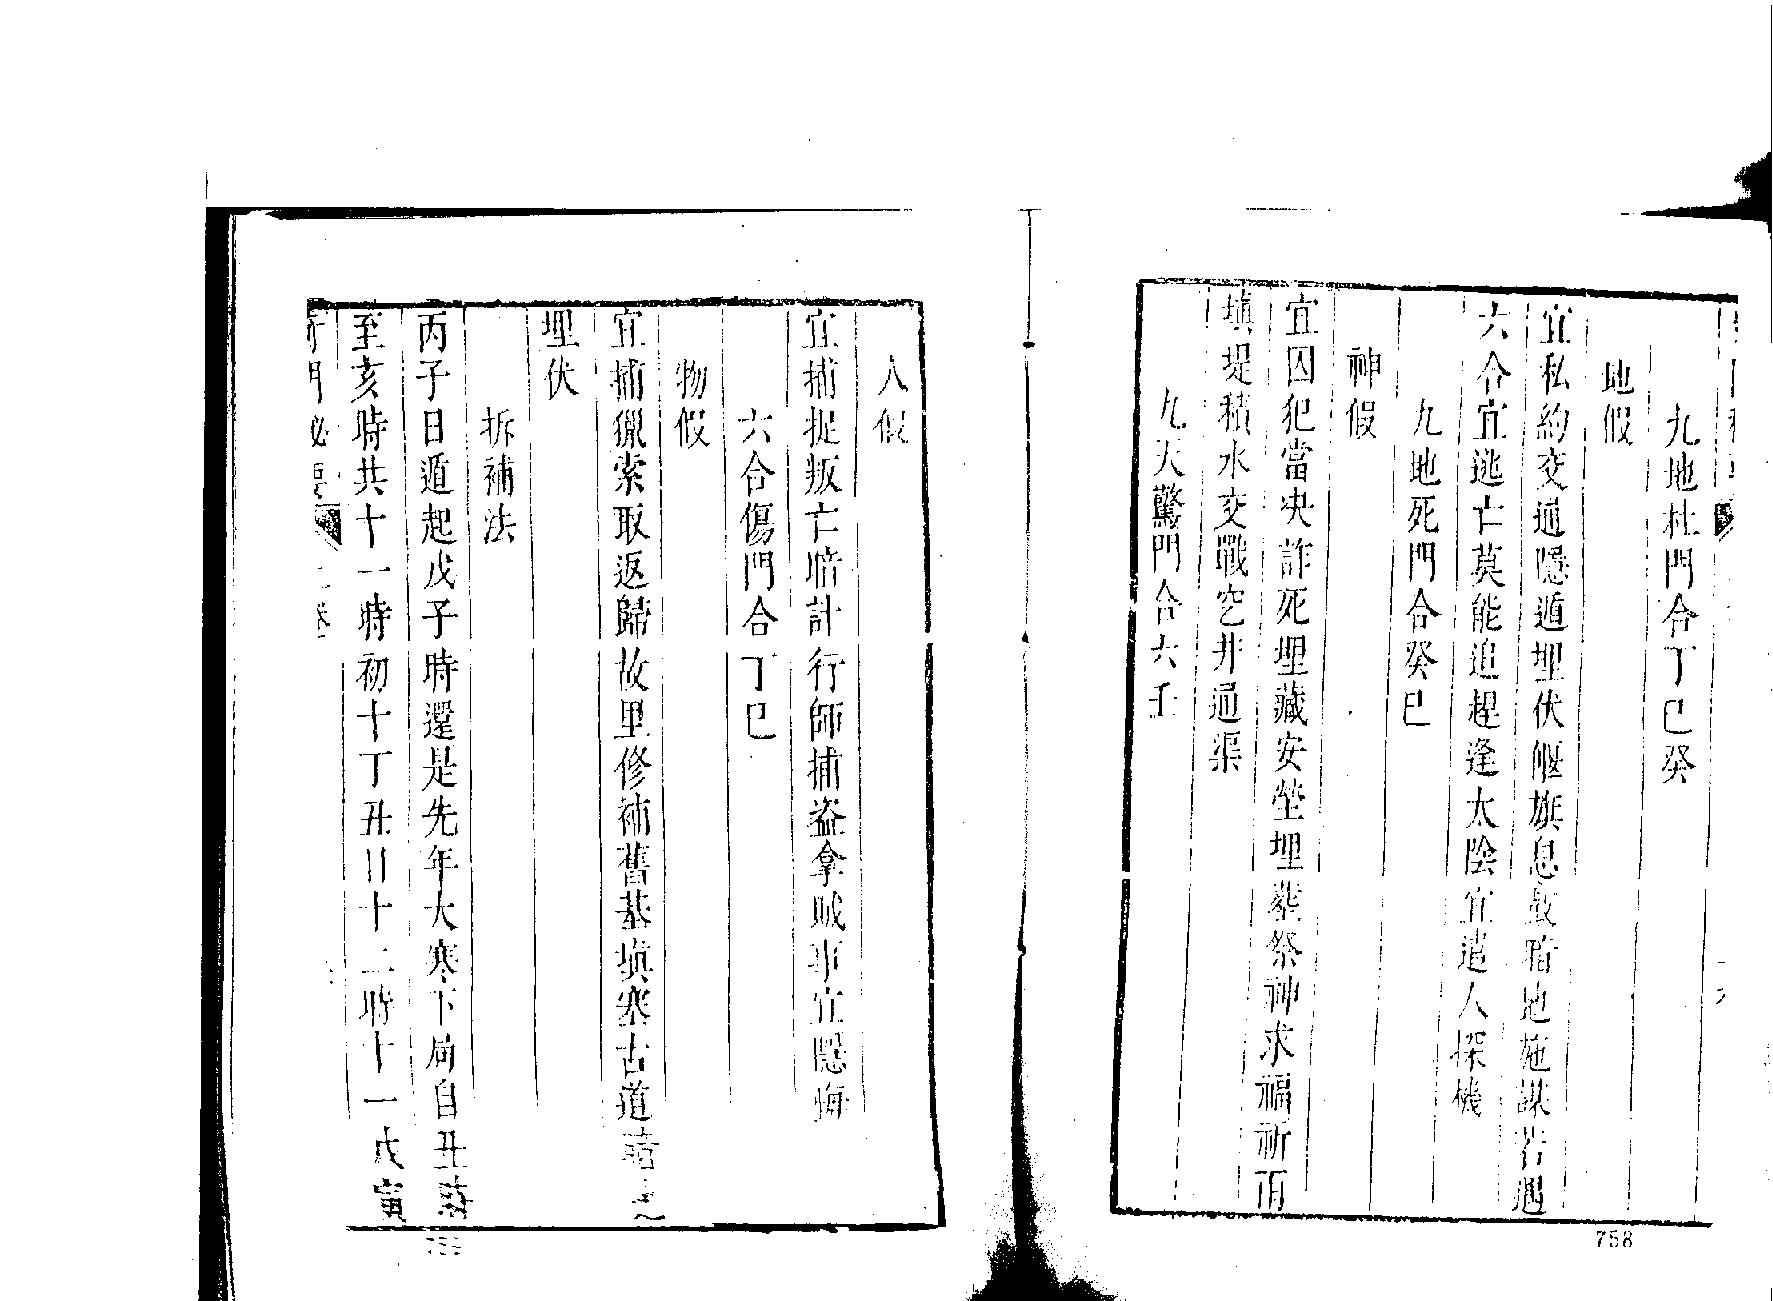 九地杜門合丁己癸
地假
宜私約交通隱遁埋伏偃旗息鼓暗地施謀若遇
六合宜逃亡莫能追趕逢太陰宜遣人探機
九地死門合癸巳
神假
宜囚犯當决詐死埋藏安塋埋葬祭神求福祈雨
填堤積水交戰空井通渠
九天驚門合六壬
758
人假
宜捕捉叛亡暗計行師捕盗拿賊事宜隱晦
六合傷門合丁巳
物假
宜捕獵索取返歸故里修補舊基填塞古道
埋伏
拆補法
丙子日遁起戊子時還是先年大寒下局自丑時
至亥時共十一時初十丁丑日十二時十一戊寅
奇門秘要